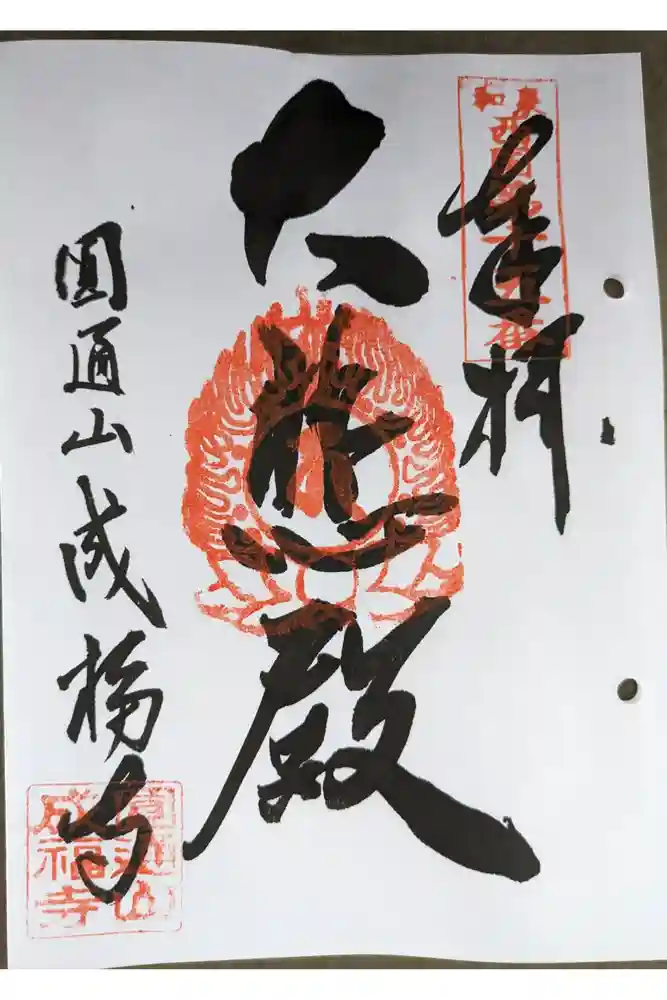 奉拝
大悲殿
圓通山成福寺
圓通山
成福寺